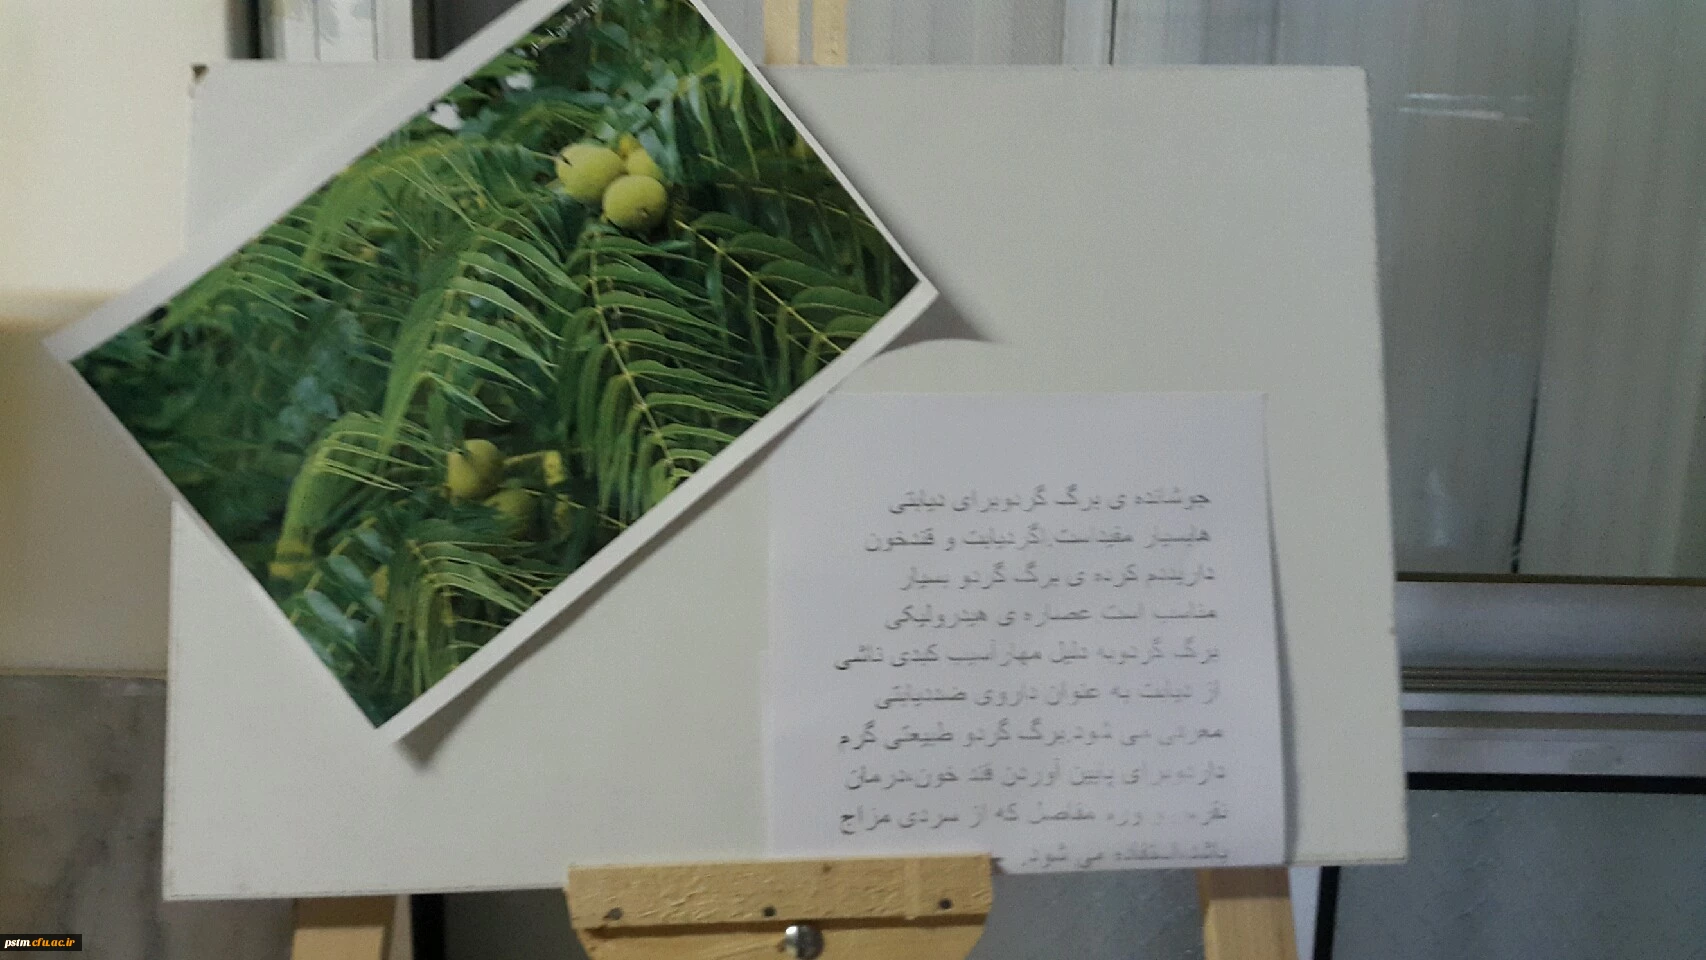 جوشانده ی برگ گردوبرای دیابتی
هابسیار مفیداست.اگردیابت و قندخون
داریددم کرده ی برگ گردو بسیار
مناسب است عصاره ی هیدرولیکی
برگ گردوبه دلیل مهارآسیب کبدی ناشی
از دیابت به عنوان داروی ضددیابتی
معرفی می شود.برگ گردو طبیعتی گرم
داردوبرای پایین آوردن قند خون،درمان
نقرس و ورم مفاصل که از سردی مزاج
باشداستفاده می شود.
pstm.cfu.ac.ir